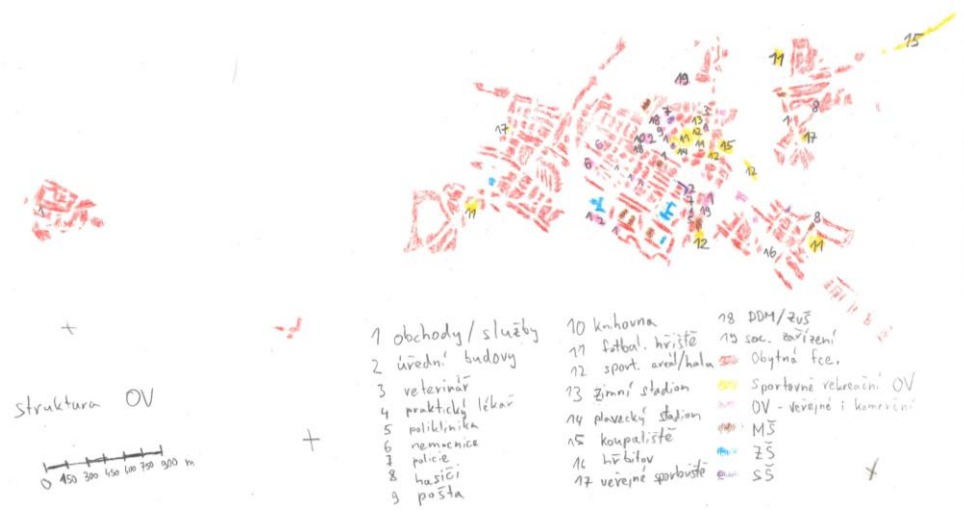 15
11
19
8
1
17
17
7
18
13
9
12
10
2
11
15
18
14
12
6
6
12
11
1
2
19
12
8
11
16
struktura OV
0 150 300 450 600 750 900 m
1 obchody/služby
2 úřední budovy
3 veterinář
4 praktický lékař
5 poliklinika
6 nemocnice
7 policie
8 hasiči
9 pošta
10 knihovna
11 fotbal. hřiště
12 sport. areál/hala
13 zimní stadion
14 plavecký stadion
15 koupaliště
16 hřbitov
17 veřejné sportoviště
18 DDM/ZUŠ
19 soc. zařízení
Obytná fce.
Sportovně rekreační OV
OV - veřejné i komerční
MŠ
ZŠ
SŠ